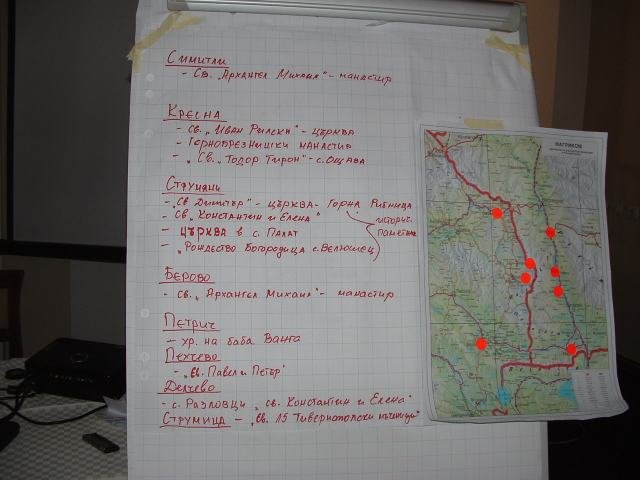 Симитли
- Св. „Архангел Михаил" - манастир
Кресна
- Св. „Иван Рилски" - църква
- Горнобрезнишки манастир
- „Св. Тодор Тирон" - с. Ощава
Струмяни
- „Св Димитър" - църква - Горна Рибница
- Св. „Константин и Елена"
историч. паметник
- църква в с. Палат
- „Рождество Богородица с. Велющец
Берово
- св. „Архангел Михаил" - манастир
Петрич
- хр. на баба Ванга
Пехчево
- „Св. Павел и Петър"
Делчево
- с. Разловци „св. Константин и Елена"
Струмица - „Св. 15 Тивериополски мъченици"